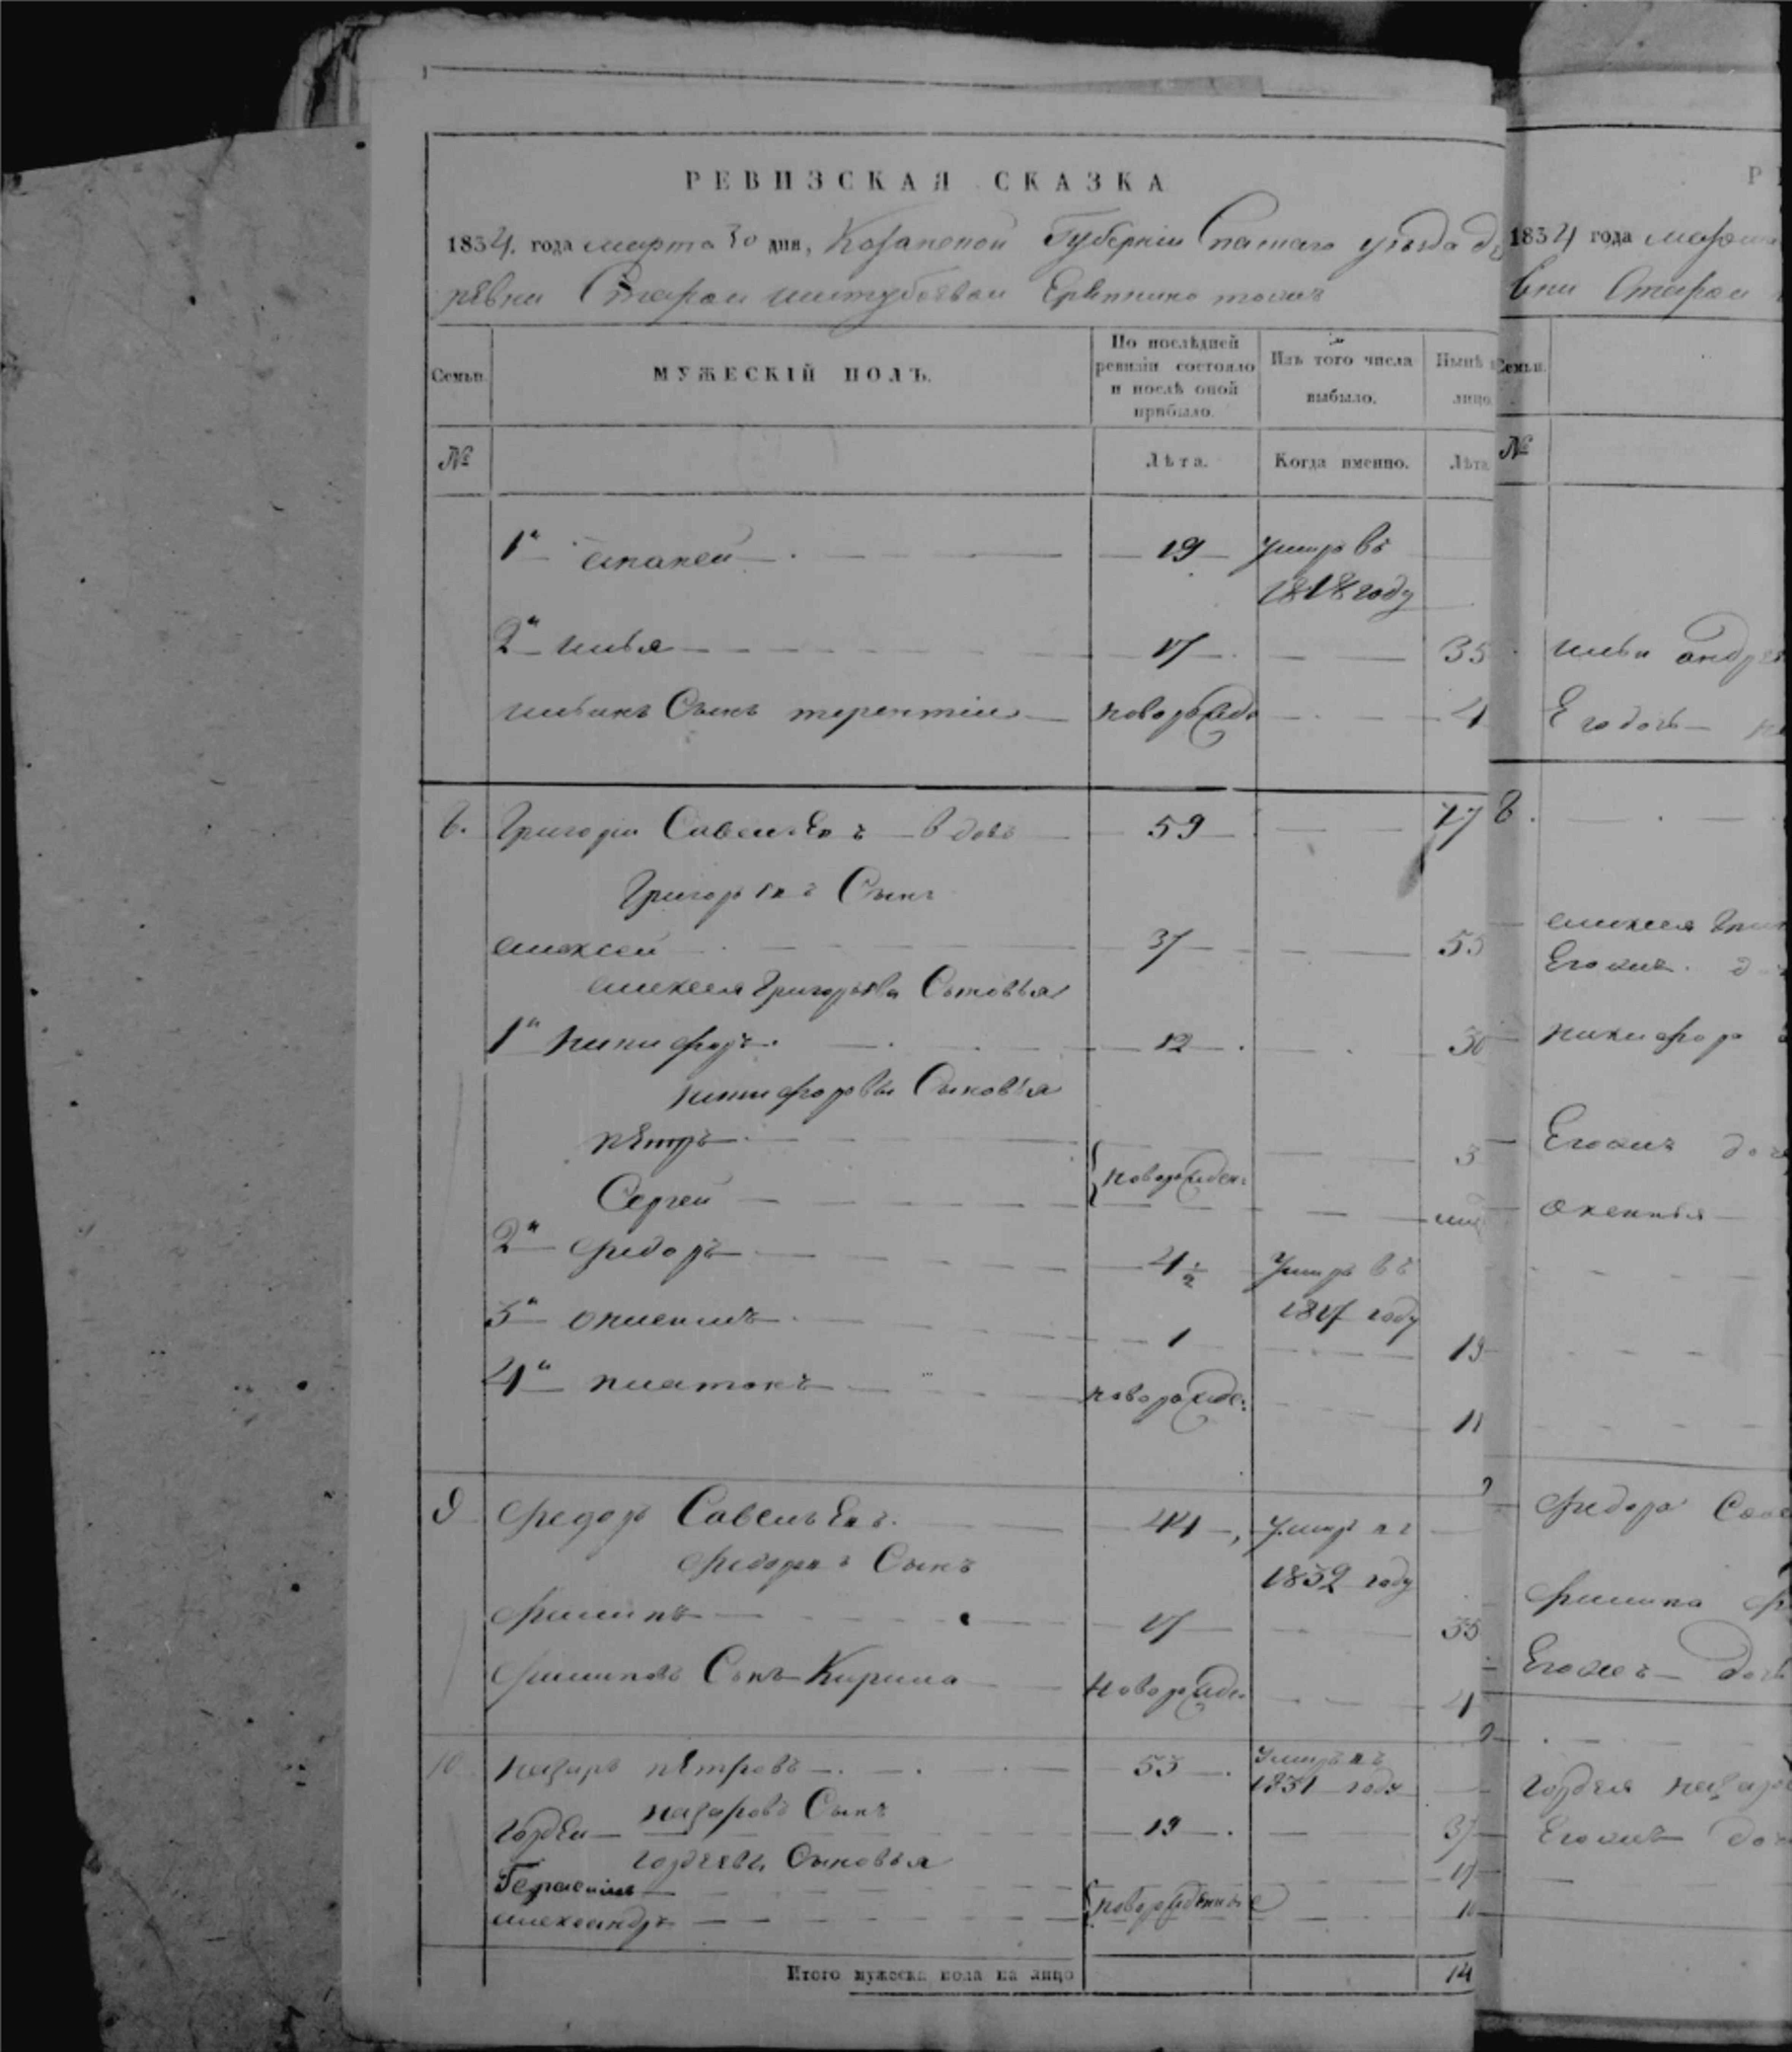 РЕВИЗСКАЯ СКАЗКА
1834. года марта 30 дня, Казанской Губерніи Спаскаго уѣзда де
ревни Старой
Семьи.
МУЖЕСКІЙ ПОЛЪ.
По послѣдней ревизіи состояло и послѣ оной прибыло.
Изъ того числа выбыло.
Нынѣ
лицо.
№
Лѣта.
Когда именно.
Лѣта
1й 19 умеръ въ
1818 году
2й илья 17 35
ильинъ Сынъ терентіи новорожде 4
8. Григори Савельевъ вдовъ 59 77
Григорьевъ Сынъ
алексей 37 55
алексея Григорьева Сыновья
1й никифоръ 12 30
никифоровы Сыновья
петръ
новорожден: 3
Сергей
2й федоръ 4½ умеръ въ
1817 году
3й 1 19
4й платонъ новорожде: 11
9 федоръ Савельевъ 44 умеръ въ
федоровъ Сынъ 1832 году
филипъ 17 35
филиповъ Сынъ Кирила новорожде 4
10 назаръ петровъ 53 умеръ въ
1831 году
назаровъ Сынъ
гордеи 19 37
гордеевы Сыновья
Герасимъ 17
новорожденные
александръ 10
Итого мужеска пола на лицо 14
Р
1834 года марта
вни Старой
Семьи.
№
ильи андрее
Его дочь
8
алексея Григ
Его
никифора
Его доч
9
федора Саве
филипа ф
Его дочь
гордея назаро
Его доч